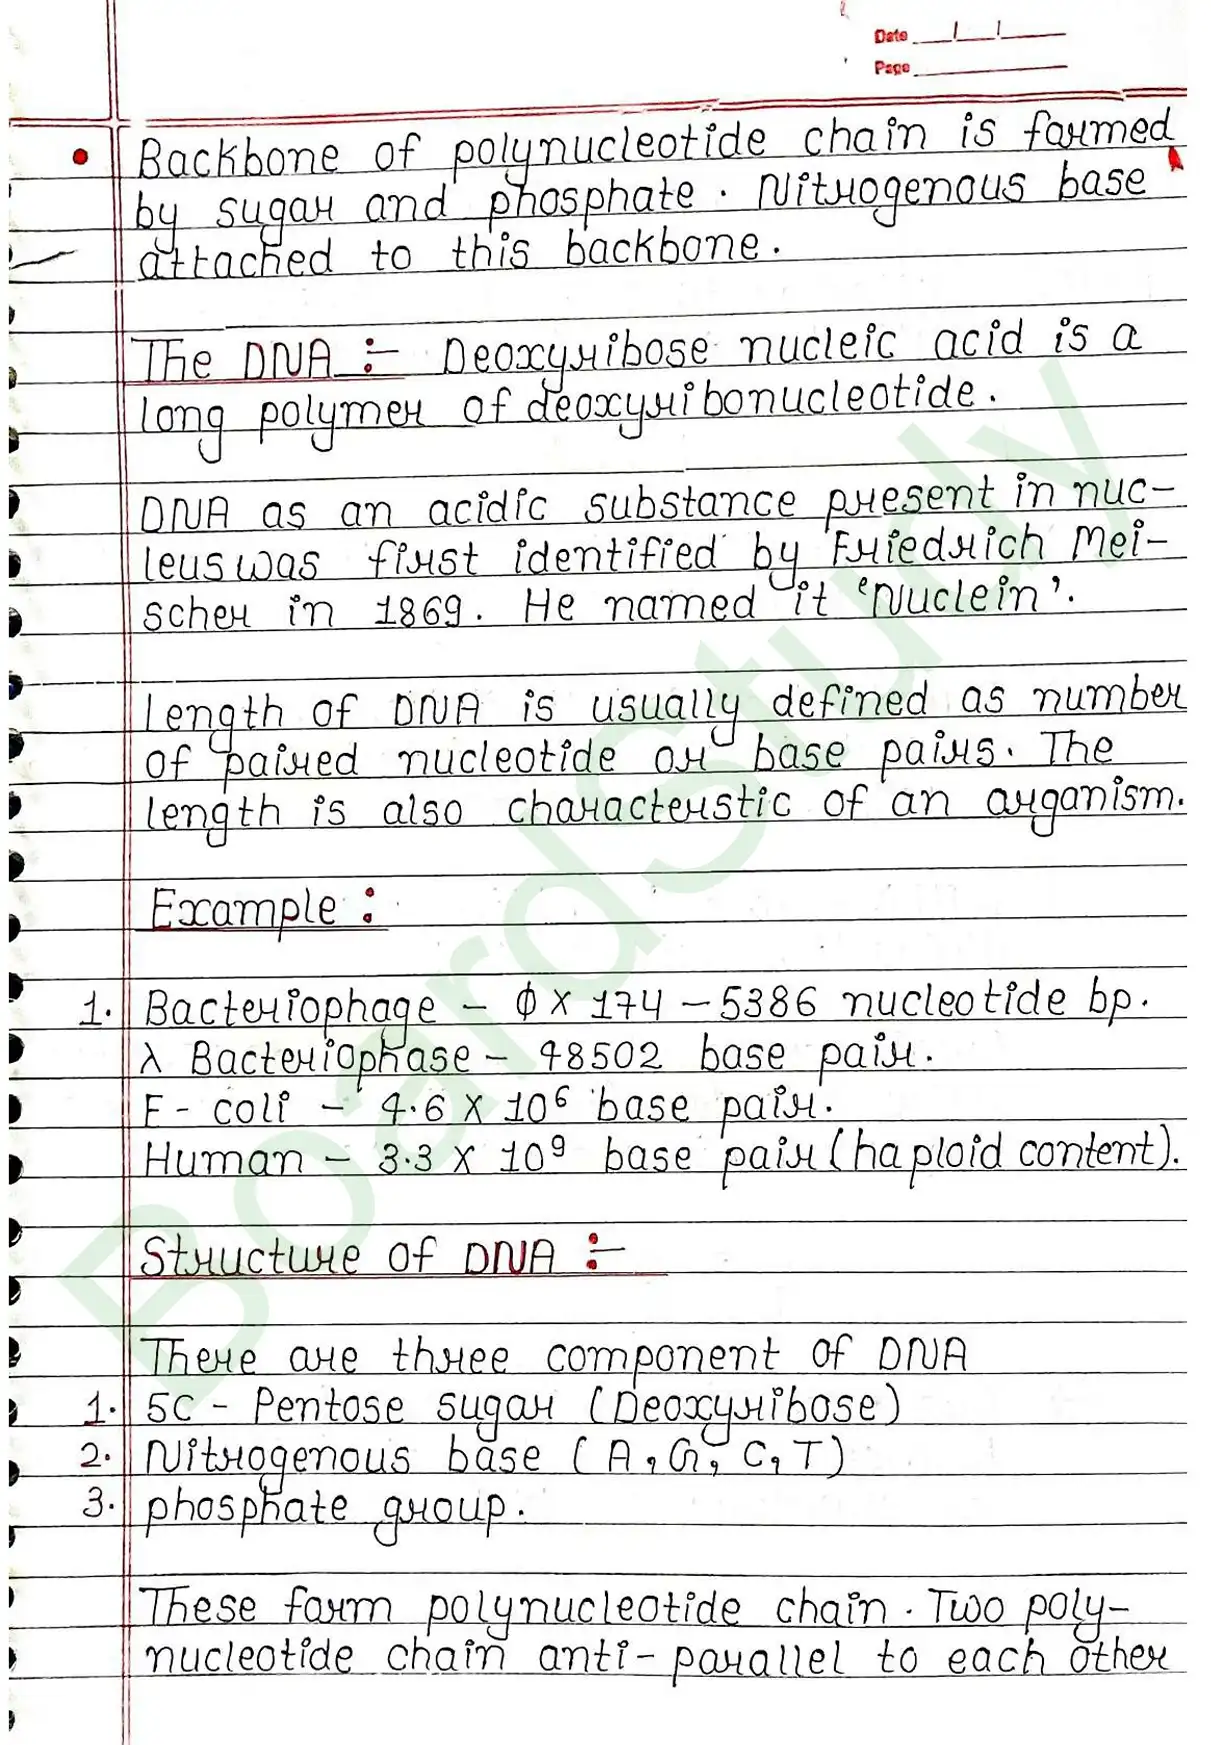 Date
Page
• Backbone of polynucleotide chain is formed
by sugar and phosphate. Nitrogenous base
attached to this backbone.
The DNA :- Deoxyribose nucleic acid is a
long polymer of deoxyribonucleotide.
DNA as an acidic substance present in nuc-
leus was first identified by Friedrich Mei-
scher in 1869. He named it 'Nuclein'.
Length of DNA is usually defined as number
of paired nucleotide or base pairs. The
length is also characterstic of an organism.
Example :
1. Bacteriophage - φ X 174 - 5386 nucleotide bp.
λ Bacteriophase - 48502 base pair.
E - coli - 4.6 X 10⁶ base pair.
Human - 3.3 X 10⁹ base pair (haploid content).
Structure of DNA :-
There are three component of DNA
1. 5C - Pentose sugar (Deoxyribose)
2. Nitrogenous base (A, G, C, T)
3. phosphate group.
These form polynucleotide chain. Two poly-
nucleotide chain anti-parallel to each other
BoardStudy